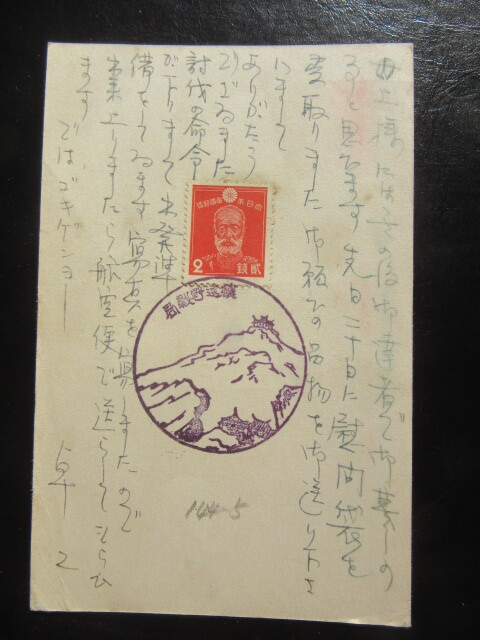 母上様にはその後御達者で御暮しの
ことと思ひます 先日二十日に慰問袋を
受取りました 御頼みの品物を御送り下さ
いまして
ありがたう
ございました
討伐の命令
が下りまして出発準
備をしてゐます 写真を写しましたので
出来上りましたら航空便で送らしてもらひ
ます
ではゴキゲンヨー
大日本帝国郵便
2
銭
貳
野戦局
144-5